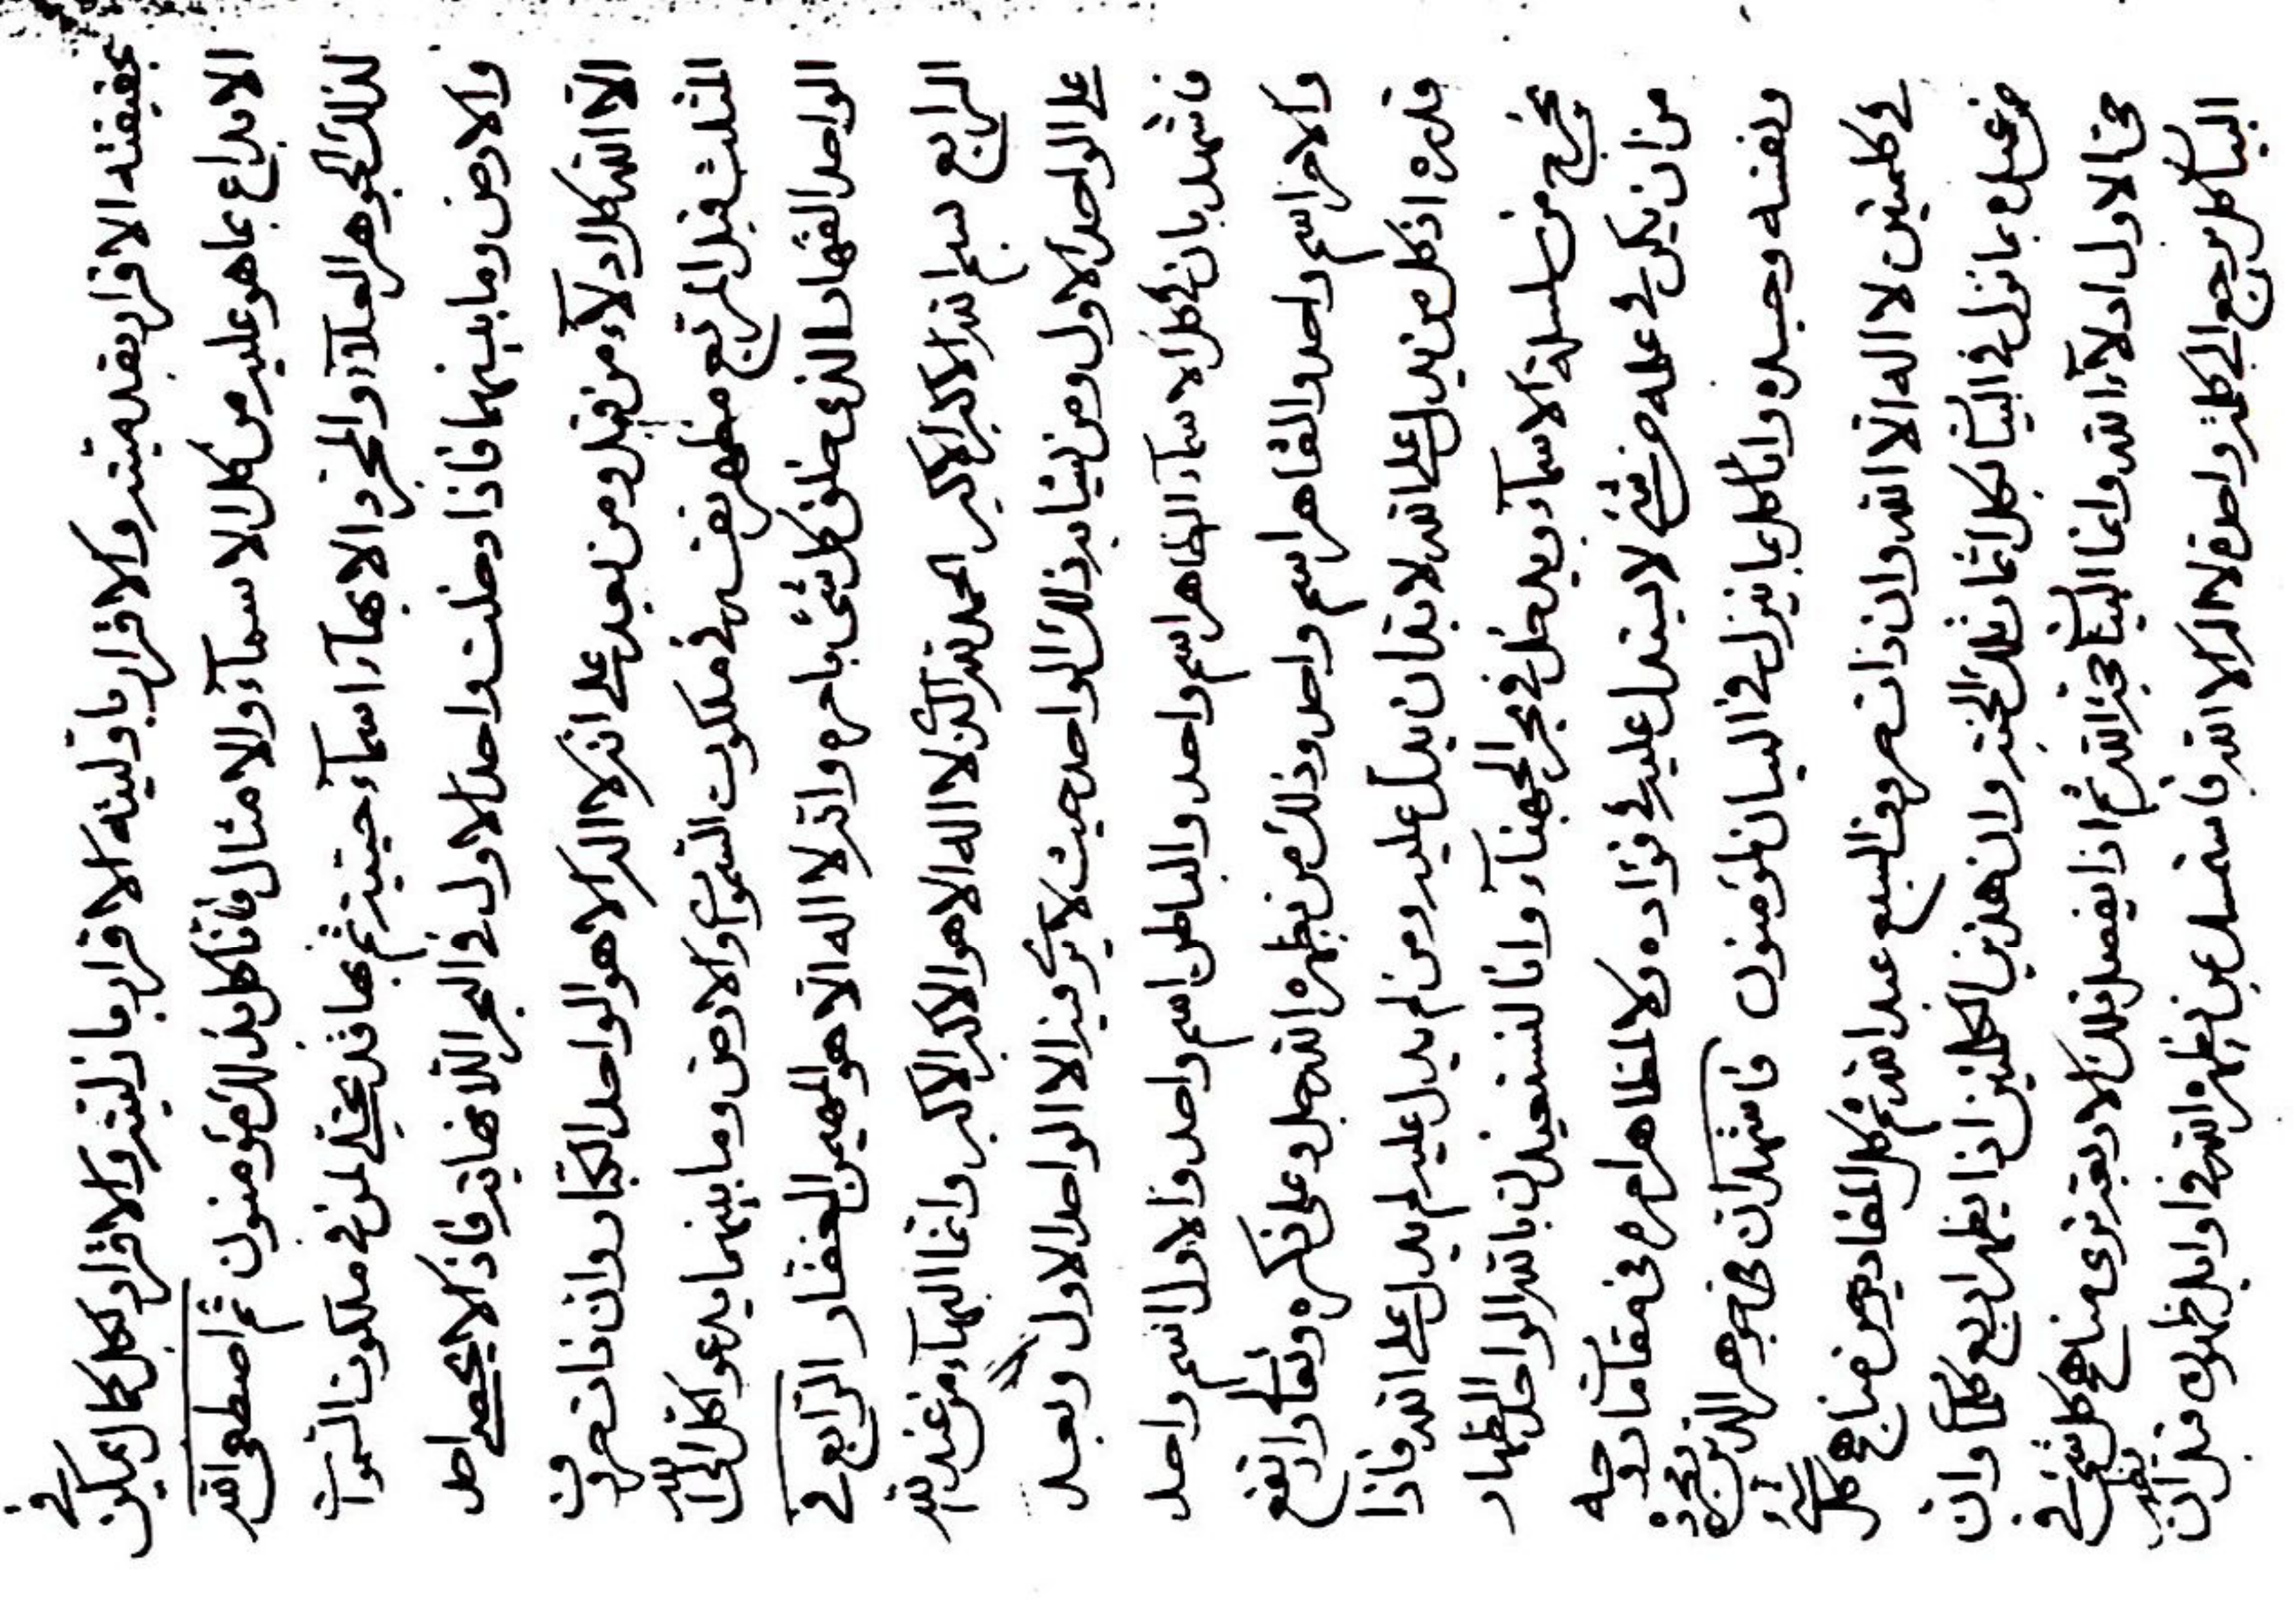 بحقيقته الاقرار بقدميته والاقرار باوليته الاقرار بازليته والاقرار بكل كمال يمكن في
الابداع بما هو عليه من كل الاسماء والامثال فانا كل بذلك مؤمنون ثم اصطفى الله
لذلك الجوهر العلاء والمجرد الابهاء اسماء حيتيه ثم بها قد تجلى لمن في ملكوت السموات
والارض وما بينهما فاذا دخلت واحد الاول في البحر اللانهاية فاذا لا يحصى احد
الا الله كل ادلاء من قبل ومن بعد على انه لا اله الا هو الواحد الكبار وان ذات حروف
المثلث قبل المربع مظهر نفسه في ملكوت السموات والارض وما بينهما يدعوا كل الى الله
الواحد القهار الذي خلق كل شئ بامره وانه لا اله الا هو المهيمن الغفار الرابع في
الرابع بسم الله الاكبر الاكبر الحمد لله الذي لا اله الا هو الاكبر الاكبر وانما البهاء من عند الله
على الواحد الاول ومن يشابه ذلك الواحد حيث لا يرى فيه الا الواحد الاول وبعد
فاشهد بان في كل الاسماء الظاهر اسم واحد والباطن اسم واحد والاول اسم واحد
والاخر اسم واحد والقاهر اسم واحد وذلك من يظهره الله جل وعلى ذكره وتعالى وارتفع
قدره اذ كل من يدل على الله لا بد ان يدل عليه ومن لم يدل عليه لم يدل على الله فاذا
يخرج من سلسلة الاسماء ويدخل في بحر الجهناء وانا لنستعيذن بالله الواحد الظهار
من ان يكن في علمه من شئ لا يستدل عليه في فؤاده ولا لمظاهر امره في مقامات روحه
ونفسه وجسده وانا كل بما نزل في البيان لمؤمنون فاشهد ان في جوهر الدين ومجرده
في كلمتين لا اله الا الله وان ذات حروف السبع عبد الله ثم كل المقادير من مناهج كل شئ
من عمل بما نزل في البيان لكل اثمار تلك الشجرة وان هذين الكلمتين اذا يظهر اربع كلمات وان
في الاول ادلاء الله وانما البيان حجة الله ثم اذا يفصل تلك الاربعة ترى مناهج كل شئ في
البيان كل يرجع الى كلمة واحدة لا اله الا الله فاستدل عن يظهره الله في اول ظهوره قبل ان يظهر